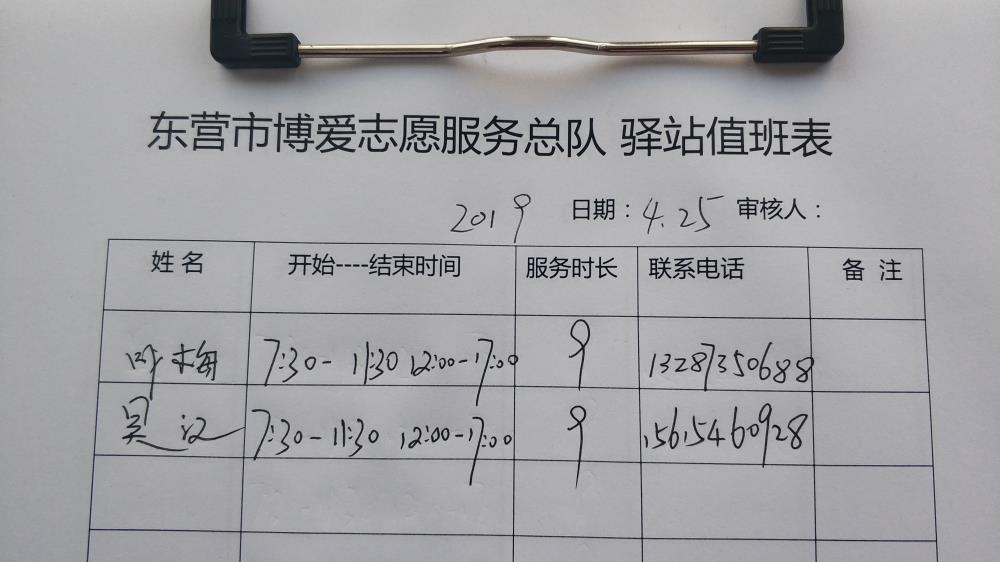 东营市博爱志愿服务总队 驿站值班表
2019 日期：4.25 审核人：
姓 名 开始----结束时间 服务时长 联系电话 备 注
叶梅 7:30-11:30 12:00-17:00 9 13287350688
吴 7:30-11:30 12:00-17:00 9 15615460928